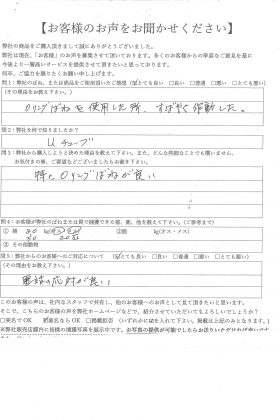 【お客様のお声をお聞かせください】
弊社の商品をご購入頂きまして誠にありがとうございました。
弊社では現在、「お客様」のお声を募集させて頂いております。多くのお客様からの率直なご意見を基に
今後より一層高いサービスを提供させて頂きたいと思っております。
何卒、ご協力を賜りたくお願い申し上げます。
問1：弊社のばね、または商品で捕獲頂いたご感想 (☑とても良い □良い □普通 □悪い □とても悪い)
(その理由をお教え下さい。)
Oリングばねを使用した所、すばやく作動した。
問2：弊社を何で知りましたか？
Uチューブ
問3：弊社から購入しようと決めた理由を教えて下さい。また、どんな些細なことでも構いません、
お気付きの事、ご要望などございましたらお書き下さい。
特にOリングばねが良い
問4：お客様が弊社のばねまたは罠で捕獲できた猪、鹿、他を教えて下さい。(ご参考まで)
① 猪
kg(オス・メス)
②鹿
kg(オス・メス)
③ その他動物
問5：弊社からのお客様へのご対応について (☑とても良い □良い □普通 □悪い □とても悪い)
(その理由をお教え下さい。)
電話の応対が良い
このお客様の声は、社内なスタッフで共有し、他のお客様への声として見て頂きたいと思います。
そこで、こちらのお客様の声を弊社ホームページなどで、紹介させていただいてもよろしいでしょうか？
□実名でOK ☑匿名ならOK □掲載拒否 (いずれかに☑を入れて下さい。掲載は上記のみとなります。)
※弊社販売店舗内に皆様の捕獲写真を展示中です。お写真の提供が可能でしたらお送りいただければ幸いです